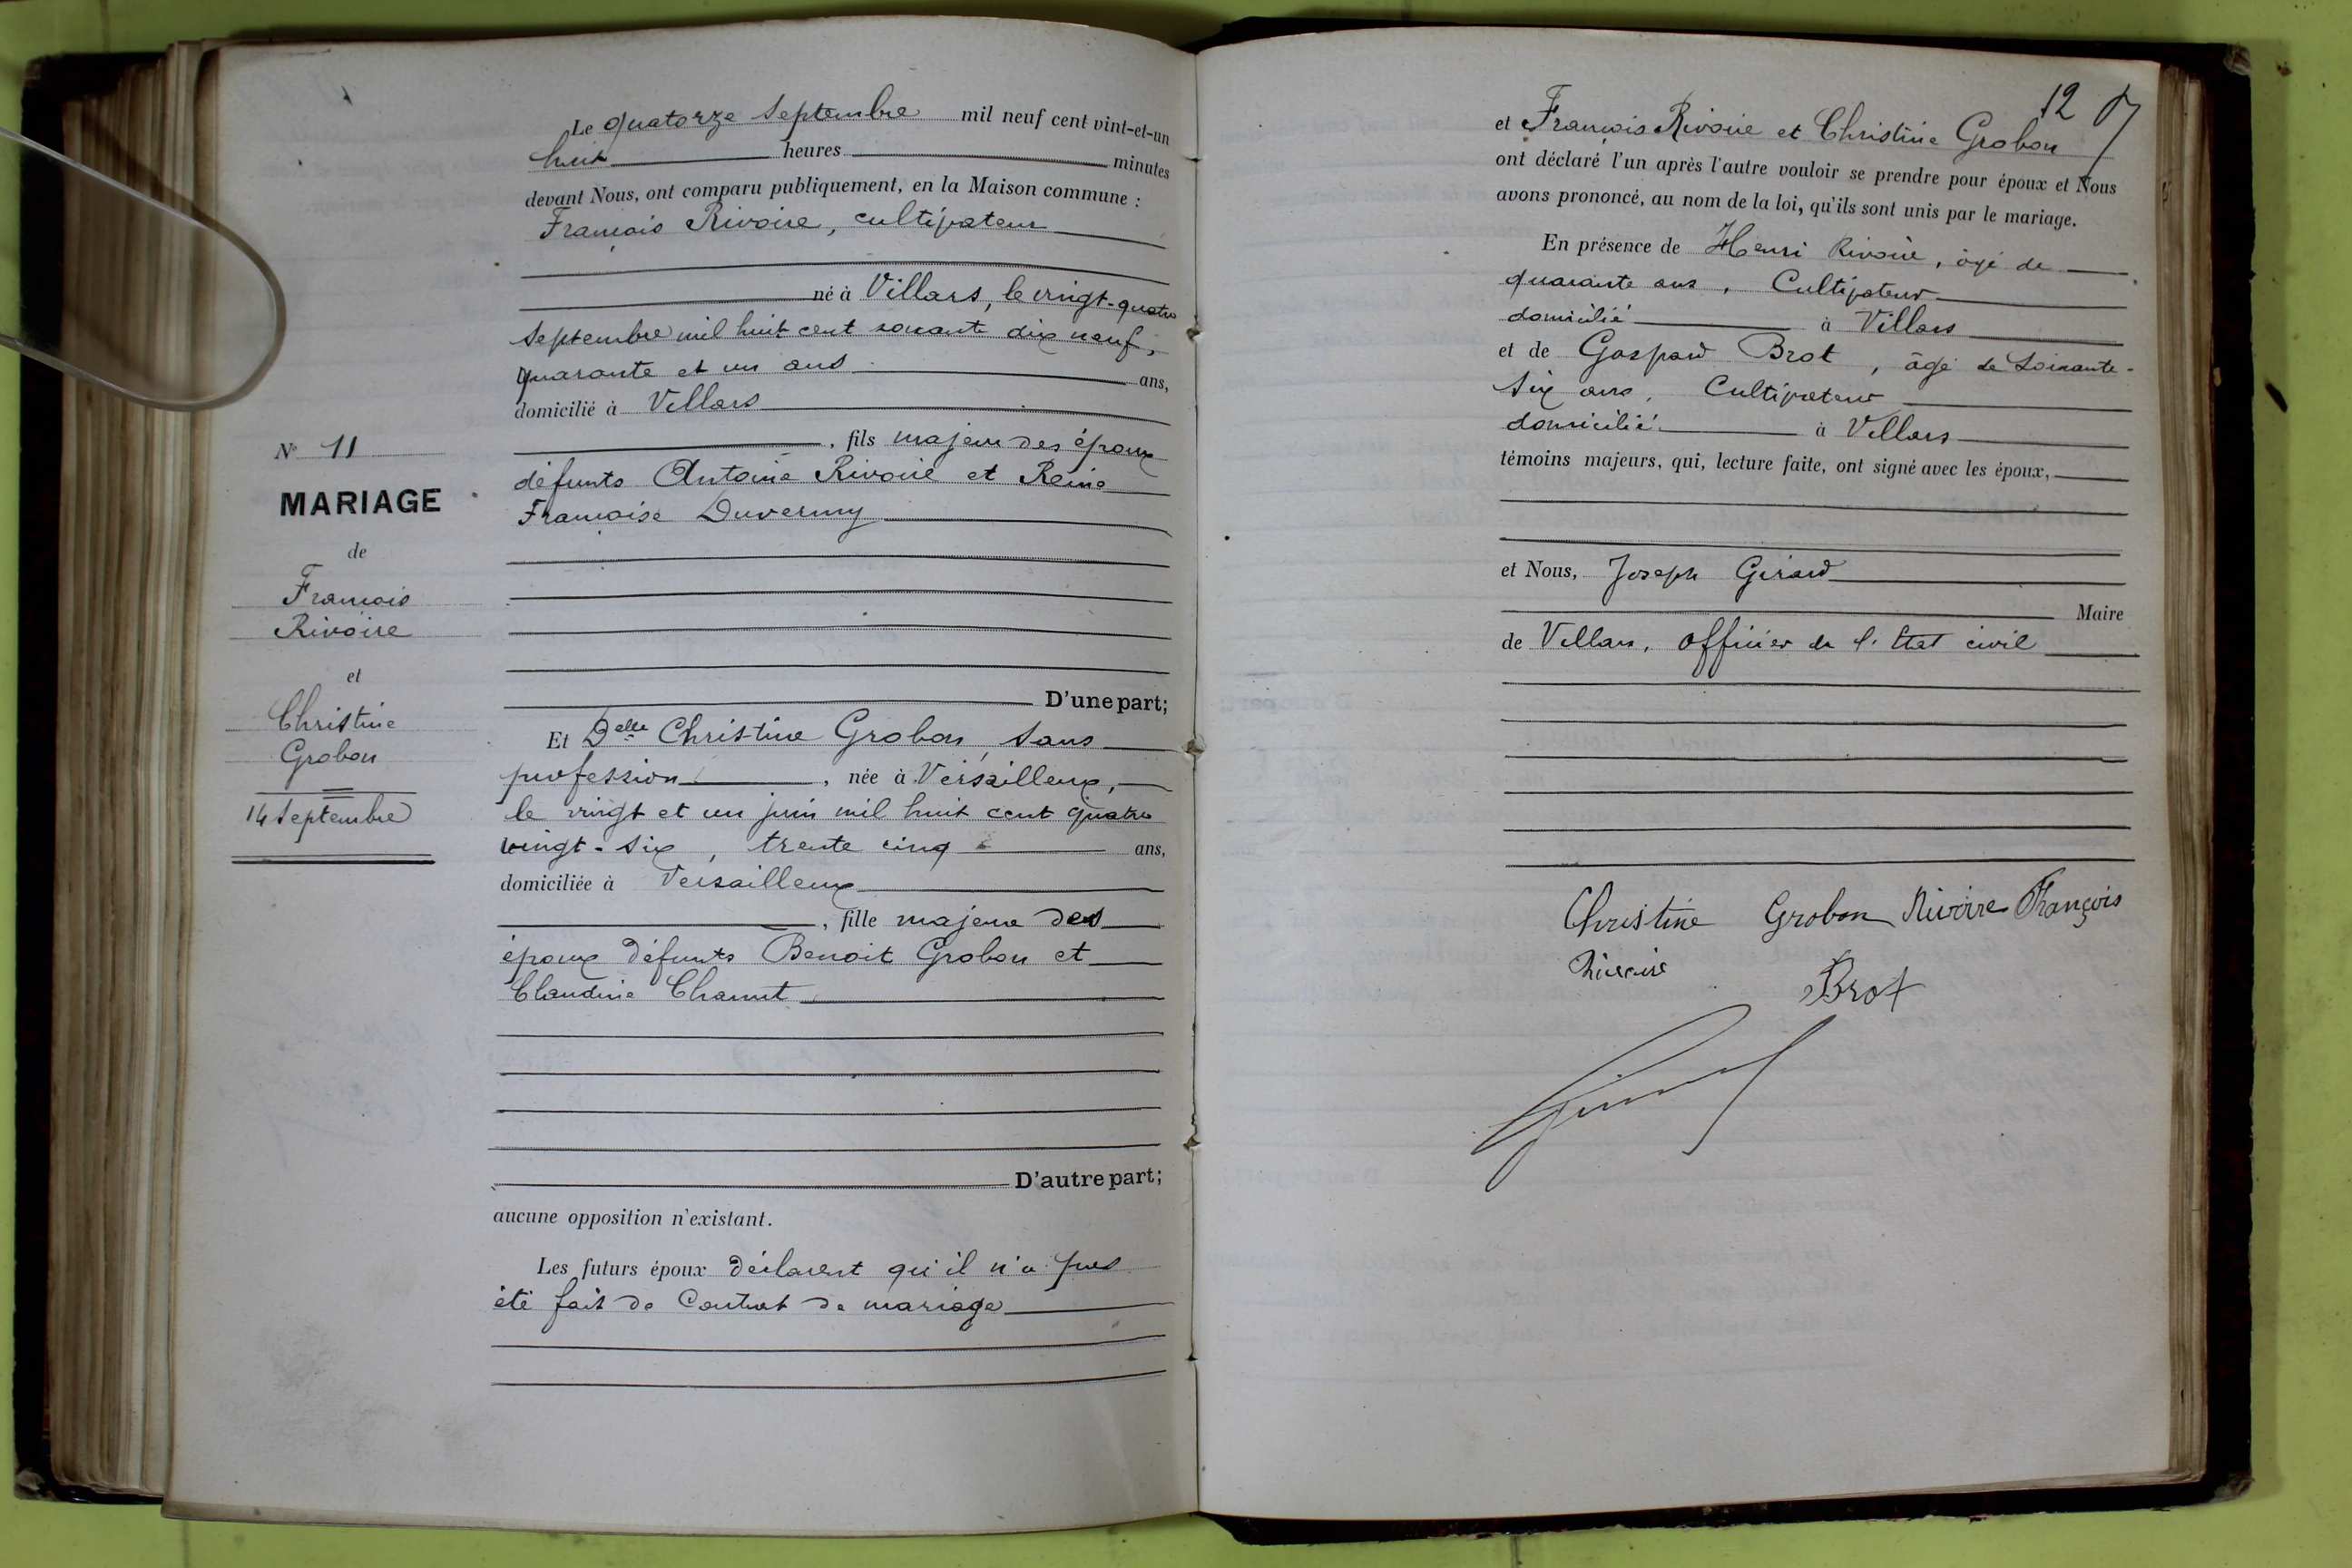 Le quatorze Septembre mil neuf cent vint-et-un
huit heures minutes
devant Nous, ont comparu publiquement, en la Maison commune :
François Rivoire, cultivateur
né à Villars, le vingt-quatre
septembre mil huit cent soixante dix neuf,
quarante et un ans ans,
domicilié à Villars
, fils majeur des époux
défunts Antoine Rivoire et Reine
Françoise Duverny
D'une part;
Et Delle Christine Grobon, sans
profession, née à Versailleux,
le vingt et un juin mil huit cent quatre
vingt-six, trente cinq ans,
domiciliée à Versailleux
, fille majeure des
époux défunts Benoit Grobon et
Claudine Chanut
D'autre part;
aucune opposition n'existant.
Les futurs époux déclarent qu'il n'a pas
été fait de Contrat de mariage
N° 11
MARIAGE
de
François
Rivoire
et
Christine
Grobon
14 Septembre
12
et François Rivoire et Christine Grobon
ont déclaré l'un après l'autre vouloir se prendre pour époux et Nous
avons prononcé, au nom de la loi, qu'ils sont unis par le mariage.
En présence de Henri Rivoire, âgé de
quarante ans, Cultivateur
domicilié à Villars
et de Gaspard Brot, âgé de Soixante-
six ans, Cultivateur
domicilié à Villars
témoins majeurs, qui, lecture faite, ont signé avec les époux,
et Nous, Joseph Girard
Maire
de Villars, officier de l'Etat civil
Christine Grobon Rivoire François
Rivoire Brot
Girard